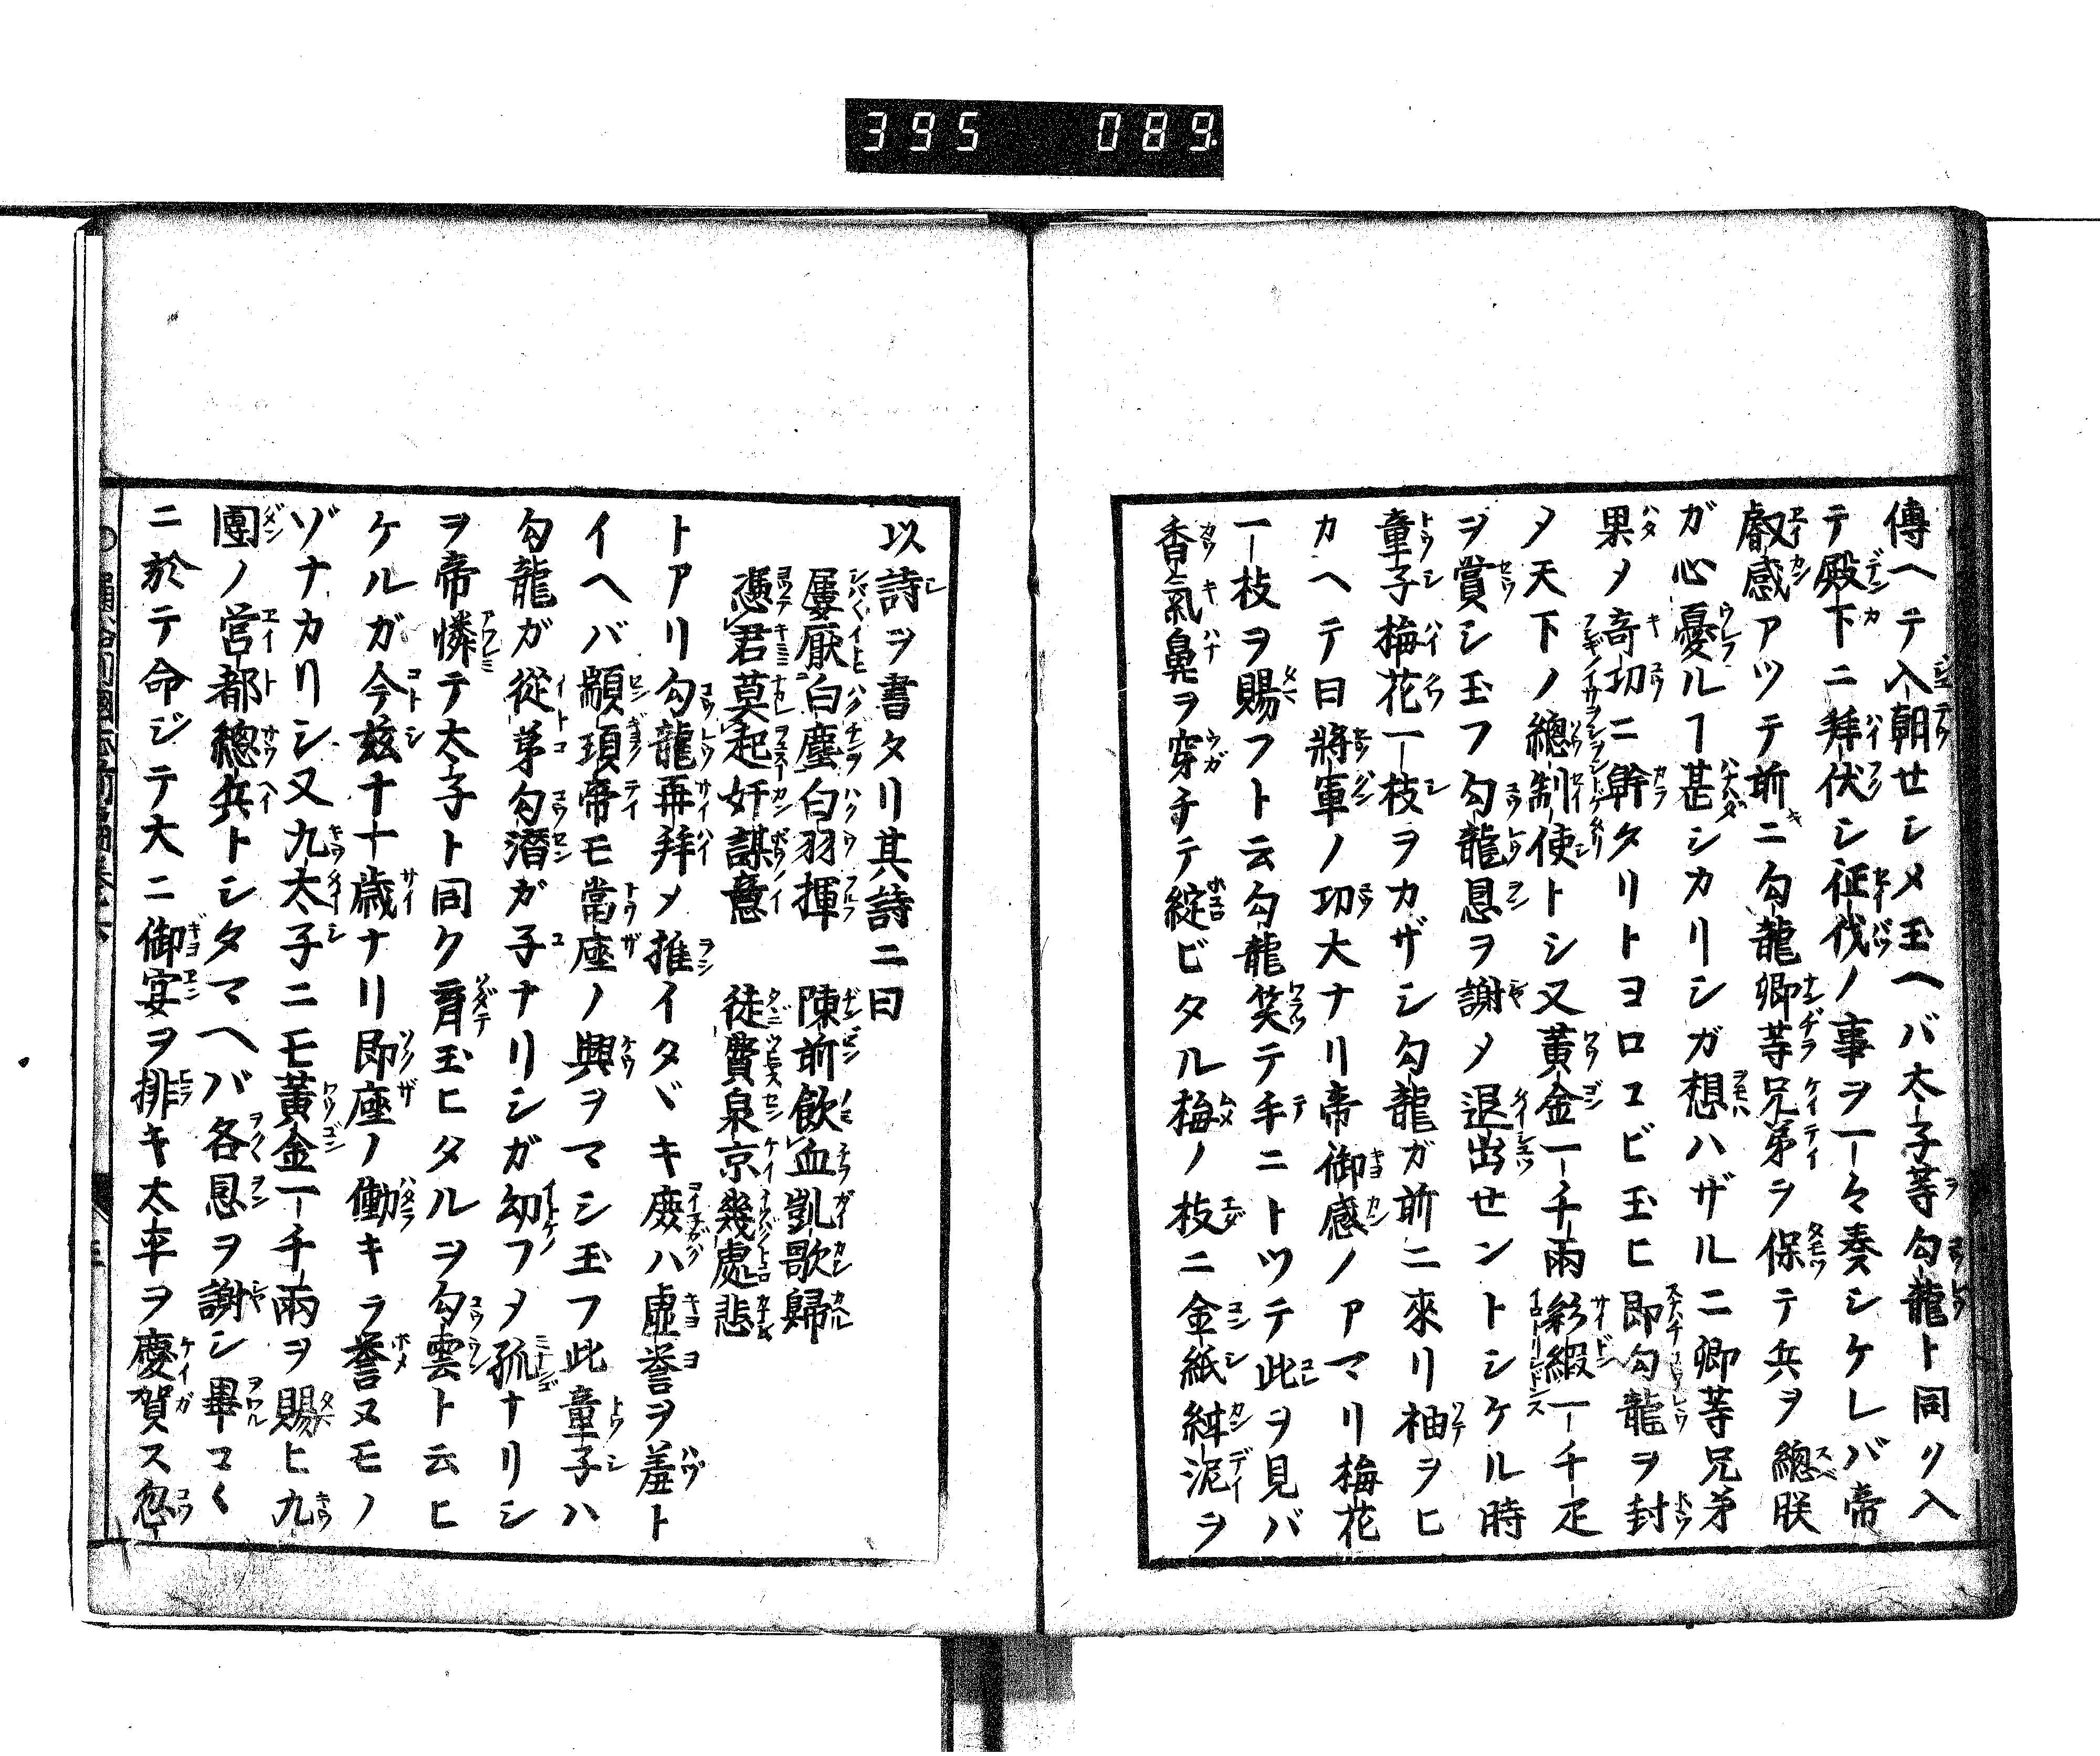 395 089.
傳ヘテ入朝セシメ玉ヘバ太子等勾龍ト同ク入
テ殿下ニ拜伏シ征伐ノ事ヲ一々奏シケレバ帝
叡感アツテ前ニ勾龍卿等兄弟ヲ保テ兵ヲ總朕
ガ心憂ルヿ甚シカリシガ想ハザルニ卿等兄弟
果メ奇功ニ幹タリトヨロコビ玉ヒ即勾龍ヲ封
メ天下ノ總制使トシ又黃金一千兩彩緞一千疋
ヲ賞シ玉フ勾龍恩ヲ謝メ退出セントシケル時
童子梅花一枝ヲカザシ勾龍ガ前ニ來リ袖ヲヒ
カヘテ曰將軍ノ功大ナリ帝御感ノアマリ梅花
一枝ヲ賜フト云勾龍笑テ手ニトツテ此ヲ見バ
香氣鼻ヲ穿チテ綻ビタル梅ノ枝ニ金紙紺泥ヲ
以詩ヲ書タリ其詩ニ曰
屢厭白塵白羽揮 陳前飲血凱歌歸
憑君莫起奸謀意 徒費泉京幾處悲
トアリ勾龍再拜メ推イタヾキ廢ハ虛誉ヲ羞ト
イヘバ顓頊帝モ當座ノ興ヲマシ玉フ此童子ハ
勾龍ガ從弟勾潛ガ子ナリシガ幼フメ孤ナリシ
ヲ帝憐テ太子ト同ク育玉ヒタルヲ勾雲ト云ヒ
ケルガ今玆十十歲ナリ即座ノ働キラ誉ヌモノ
ゾナカリシ又九太子ニモ黃金一千兩ヲ賜ヒ九
團ノ営都總兵トシタマヘバ各恩ヲ謝シ畢コく
ニ於テ命ジテ大ニ御宴ヲ排キ太平ヲ慶賀ス忽